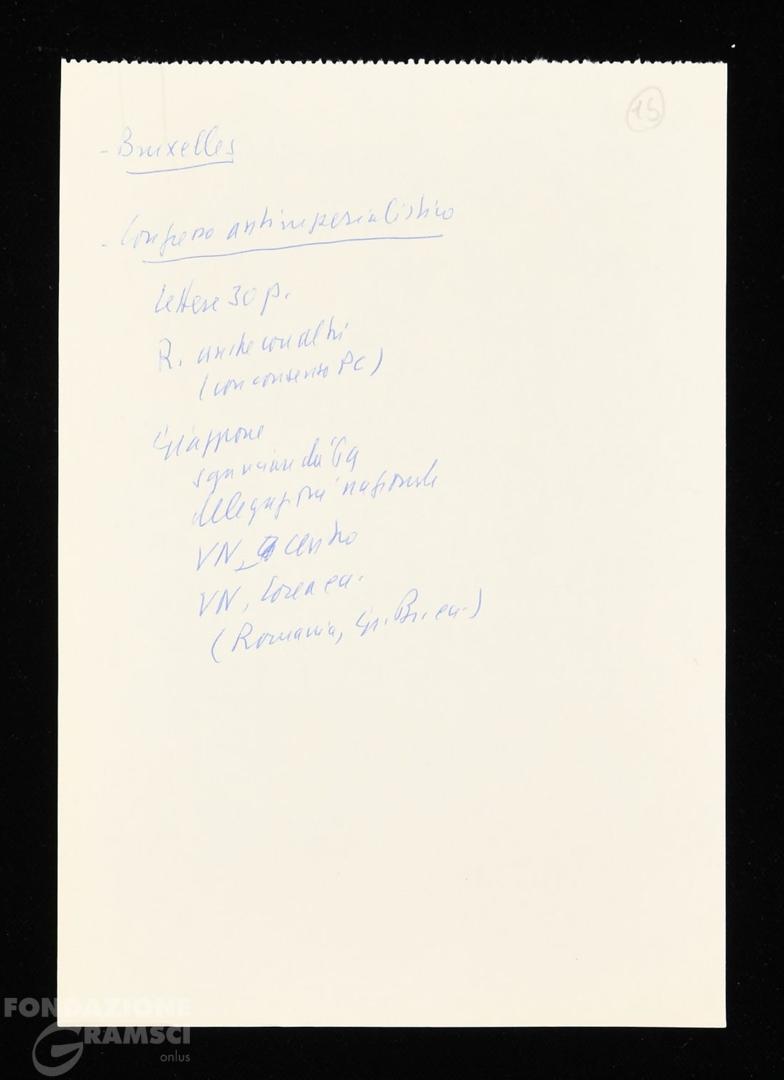 15
- Bruxelles
- Congresso antimperialistico
lettere 30 p.
R. anche con altri
(con consenso PC)
Giappone
sganciare da
delegazioni nazionali
VN, centro
VN, Corea ecc.
(Romania, Gr. Br. ecc.)
FONDAZIONE
GRAMSCI
onlus